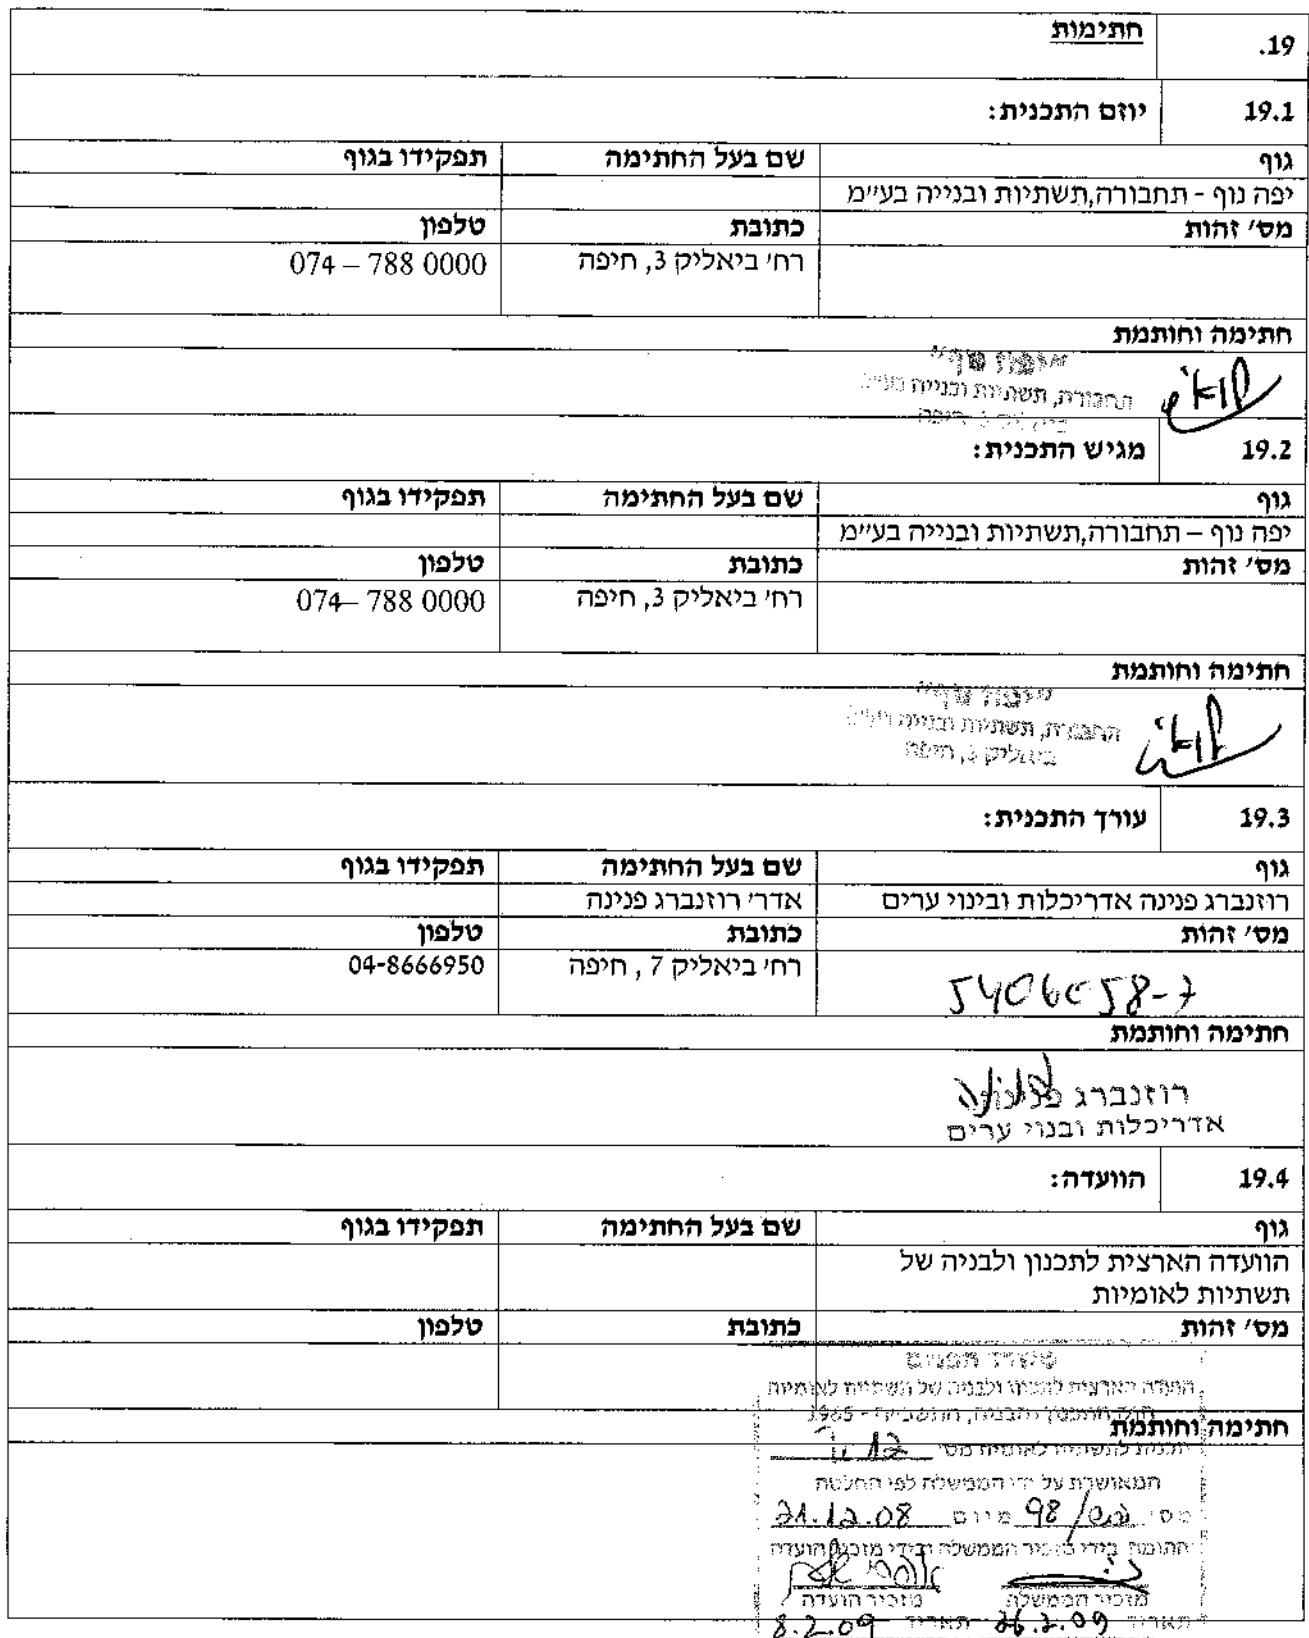 19. חתימות
19.1 יוזם התכנית:
גוף שם בעל החתימה תפקידו בגוף
יפה נוף - תחבורה,תשתיות ובנייה בע״מ
מס׳ זהות כתובת טלפון
רח׳ ביאליק 3, חיפה 074 – 788 0000
חתימה וחותמת
תחבורה, תשתיות ובנייה בע״מ
19.2 מגיש התכנית:
גוף שם בעל החתימה תפקידו בגוף
יפה נוף – תחבורה,תשתיות ובנייה בע״מ
מס׳ זהות כתובת טלפון
רח׳ ביאליק 3, חיפה 074– 788 0000
חתימה וחותמת
״יפה נוף״
תחבורה, תשתיות ובנייה בע״מ
ביאליק 3, חיפה
19.3 עורך התכנית:
גוף שם בעל החתימה תפקידו בגוף
רוזנברג פנינה אדריכלות ובינוי ערים אדר׳ רוזנברג פנינה
מס׳ זהות כתובת טלפון
רח׳ ביאליק 7 , חיפה 04-8666950
חתימה וחותמת
רוזנברג פנינה
אדריכלות ובנוי ערים
19.4 הוועדה:
גוף שם בעל החתימה תפקידו בגוף
הוועדה הארצית לתכנון ולבניה של
תשתיות לאומיות
מס׳ זהות כתובת טלפון
משרד הפנים
הועדה הארצית לתכנון ולבניה של תשתיות לאומיות
חוק התכנון והבניה, התשכ״ה - 1965
חתימה וחותמת
תכנית לתשתיות לאומיות מס׳
המאושרת על ידי הממשלה לפי החלטה
מס׳ 98 מיום 21.12.08
חתומה בידי מזכיר הממשלה ובידי מזכיר הועדה
מזכיר הממשלה מזכיר הועדה
תאריך 26.2.09 תאריך 8.2.09